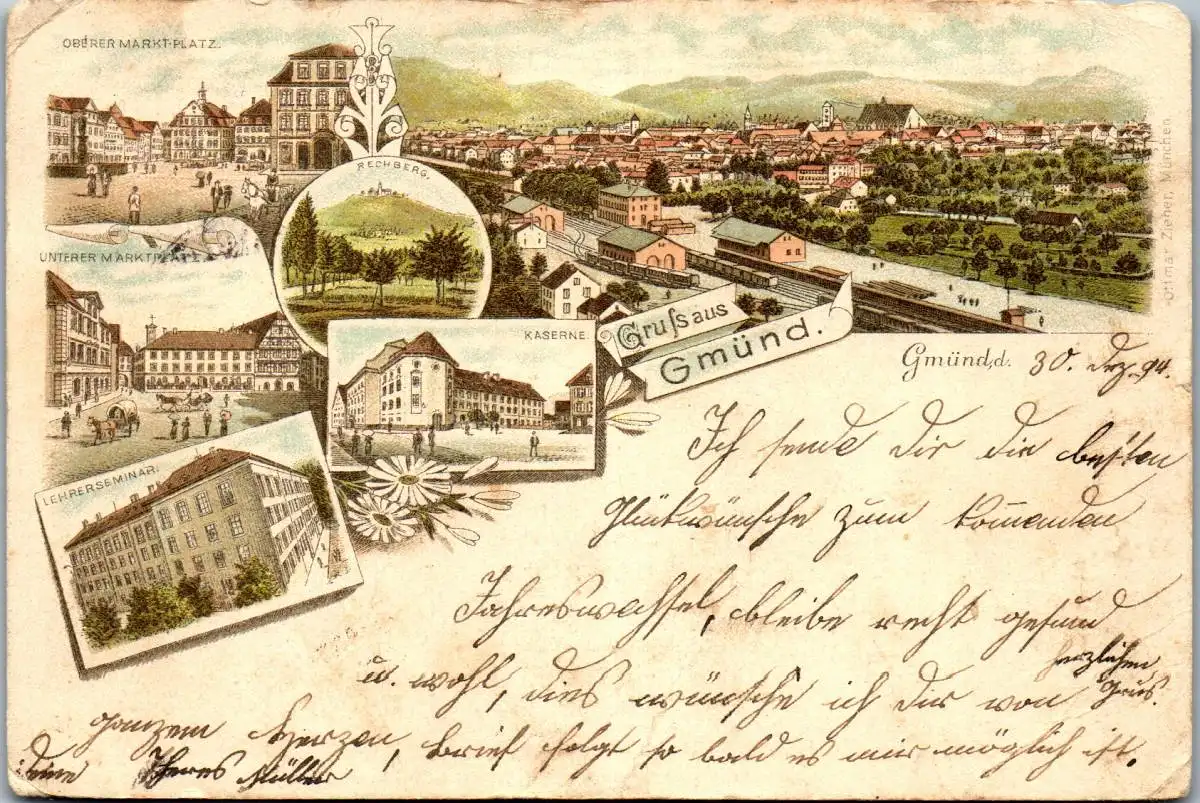 OBERER MARKT-PLATZ.
RECHBERG.
UNTERER MARKTPLATZ
KASERNE.
LEHRERSEMINAR.
Gruss aus
Gmünd.
Ottmar Zieher, München.
Gmünd, d. 30. Dez. 94.
Ich sende Dir die besten
Glükwünsche zum komenden
Jahreswechsel, bleibe recht gesund
u. wohl, dies wünsche ich Dir von
ganzem Herzen, brief folgt so bald es mir möglich ist.
herzlichen
Grus.
deine Müller